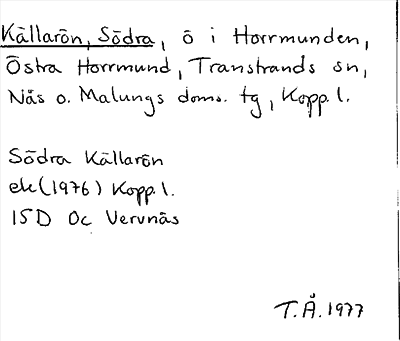 Källarön, Södra, ö i Horrmunden,
Östra Horrmund, Transtrands sn,
Nås o. Malungs doms. tg, Kopp. l.
Södra Källarön
ek (1976) Kopp. l.
15D 0c Verunäs
T.Å. 1977